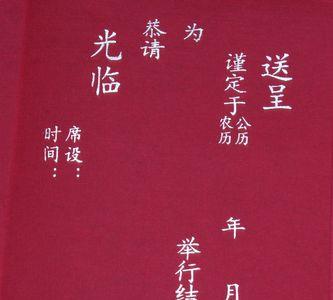 送呈
谨定于
公历
农历
年 月
为
举行结
恭请
光临
席设：
时间：